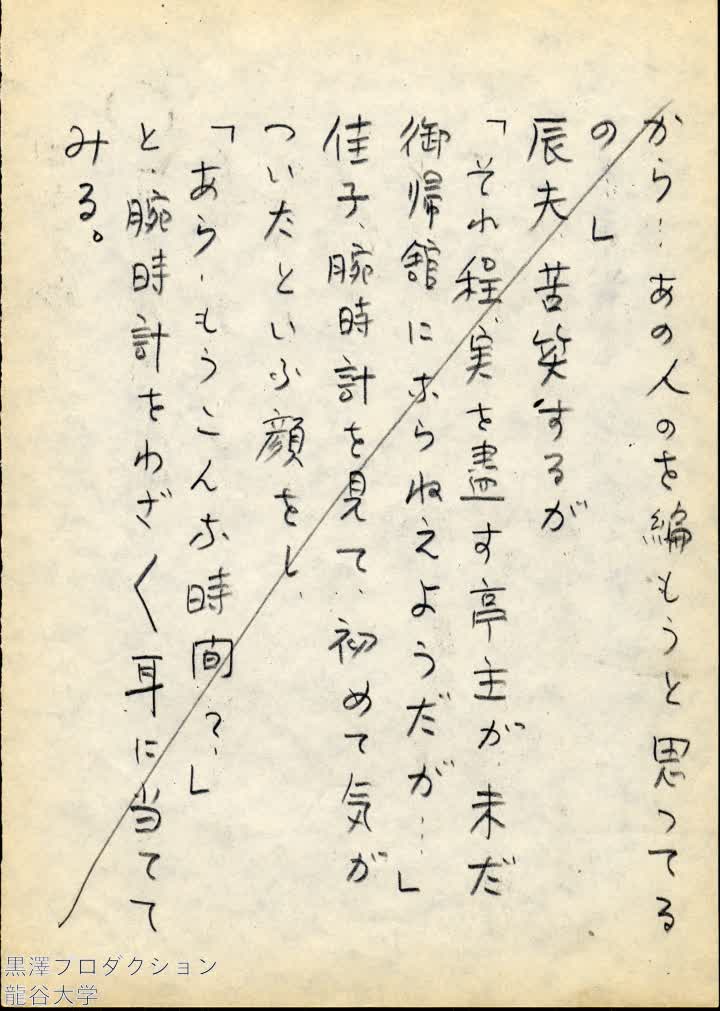 から‥あの人のを編もうと思つてる
の‥」
辰夫、苦笑するが
「それ程、実を盡す亭主が、未だ
御帰館にならねえようだが‥」
佳子、腕時計を見て、初めて気が
ついたといふ顔をし、
「あら、もうこんな時間？」
と、腕時計をわざ〱耳に当てて
みる。
黒澤プロダクション
龍谷大学